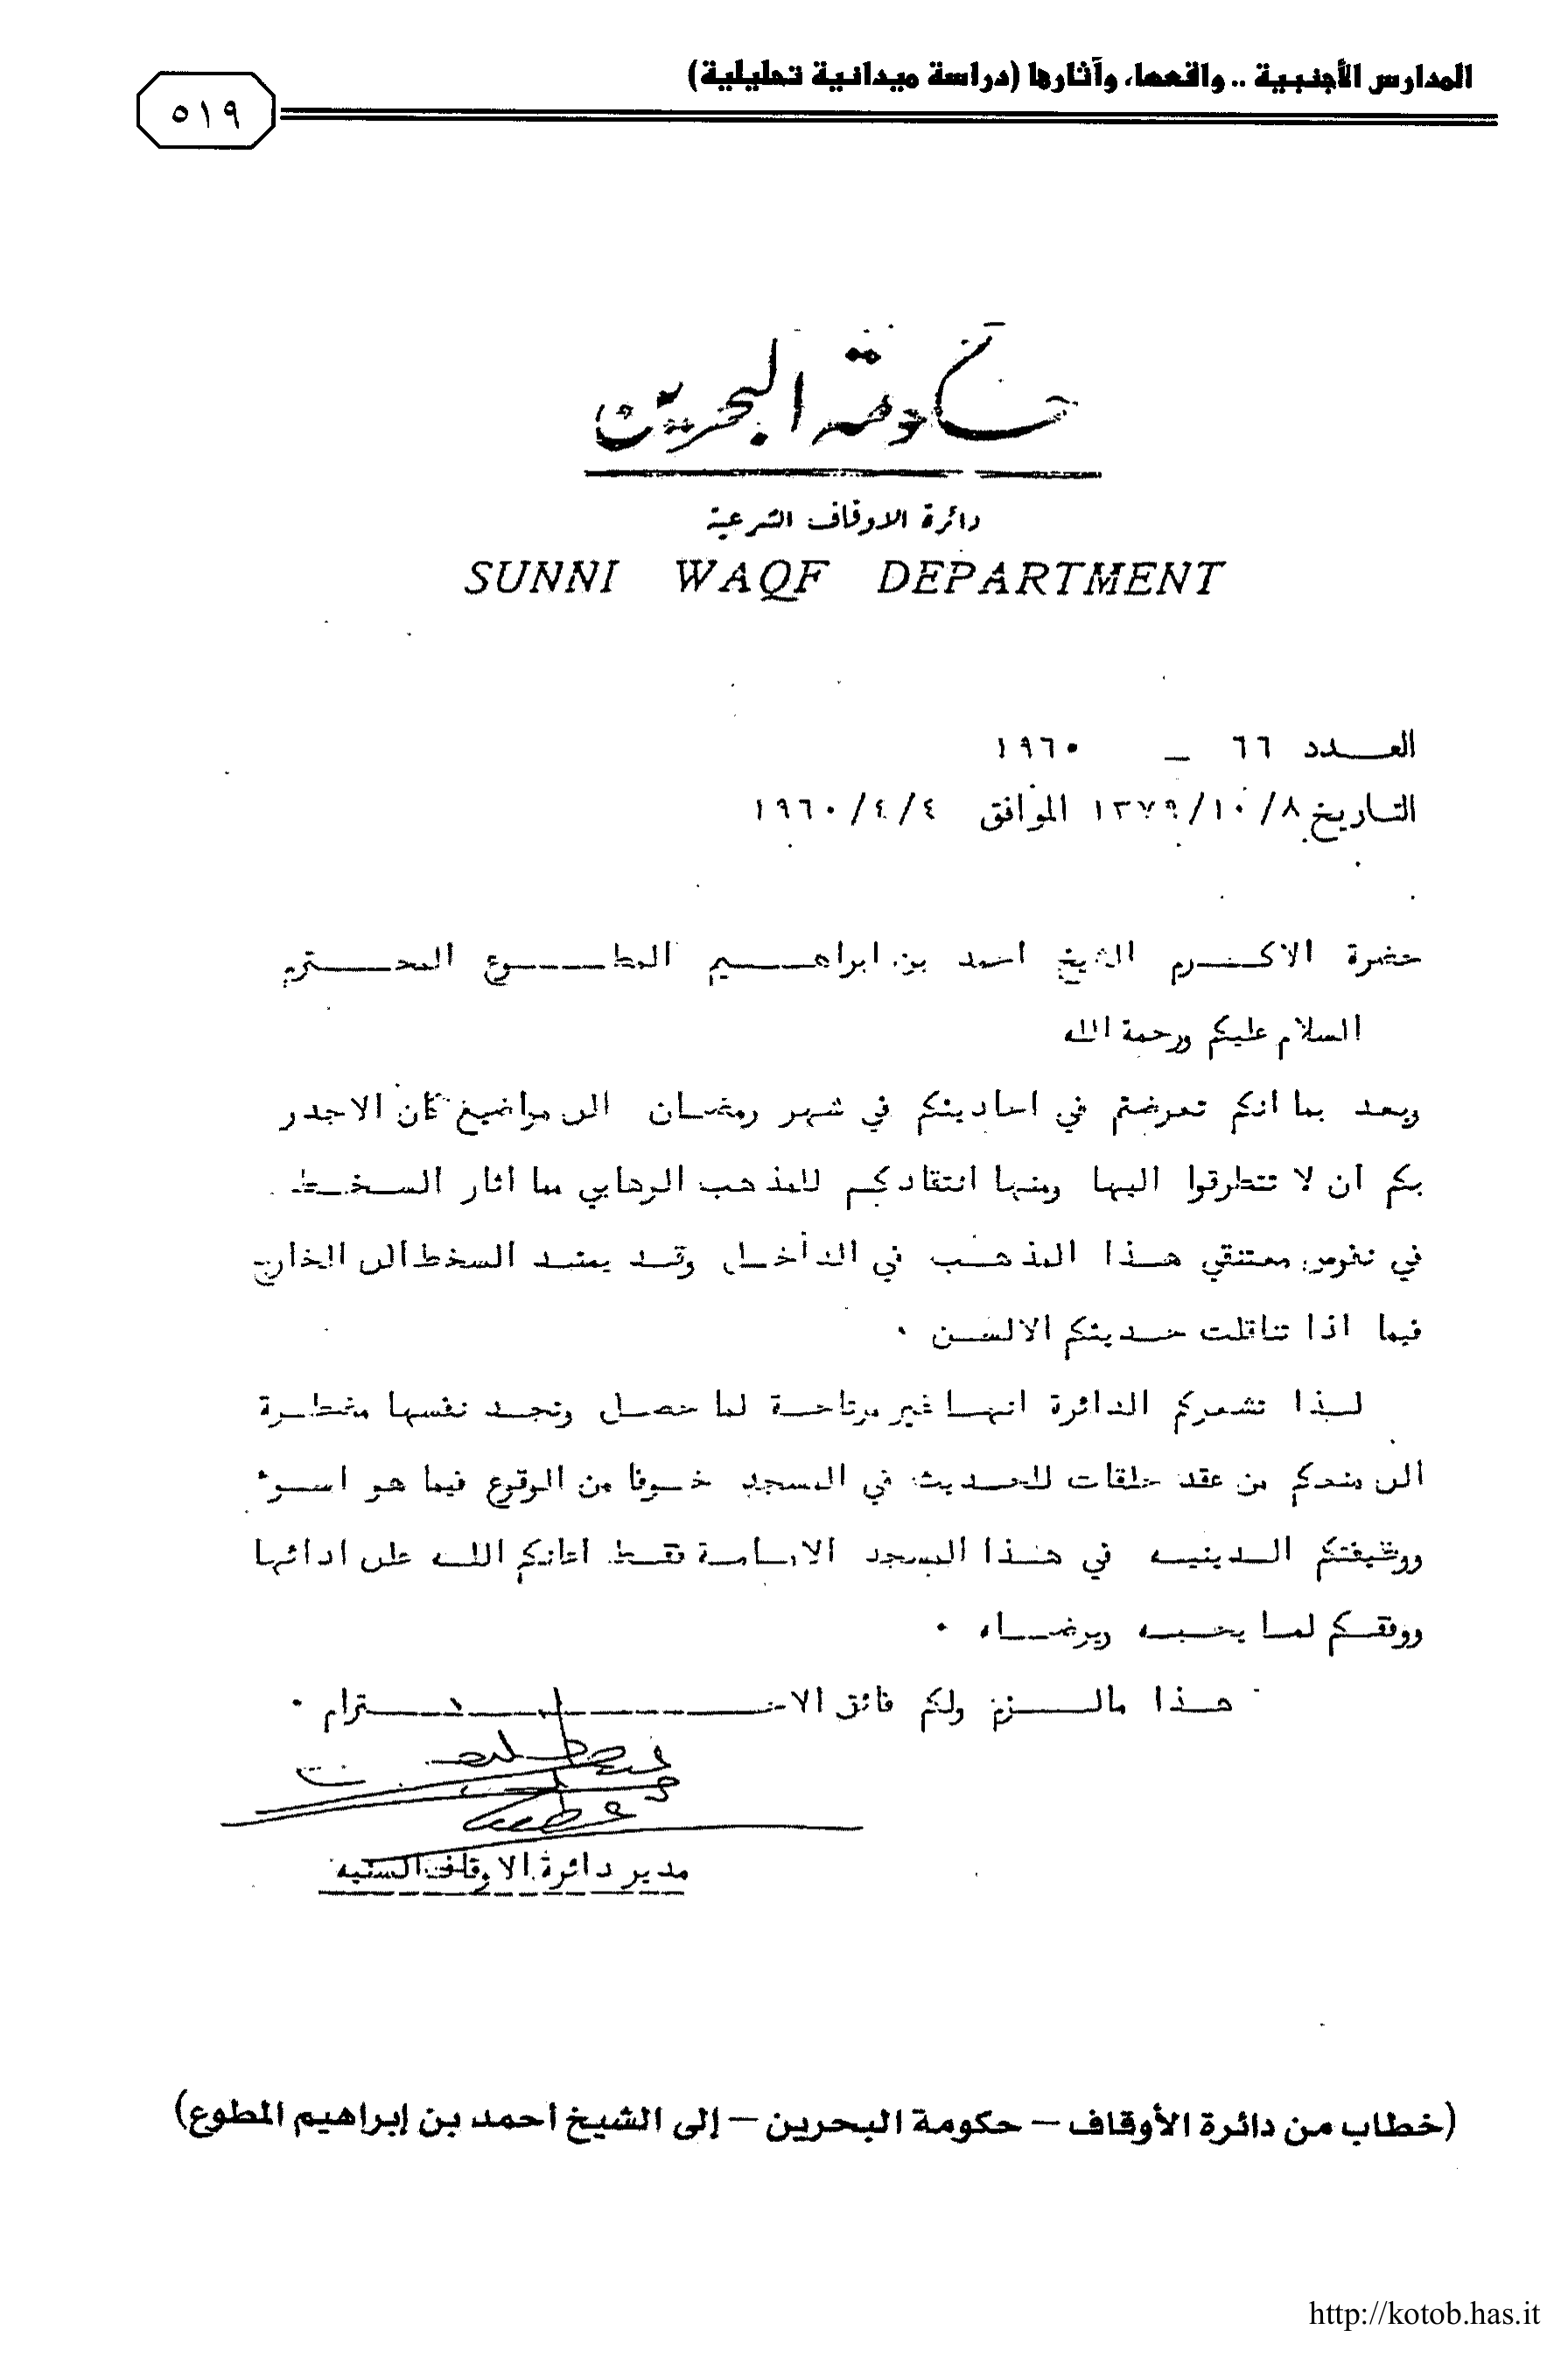 المدارس الأجنبية .. واقعها، وآثارها (دراسة ميدانية تحليلية)
٥١٩
حكومة البحرين
دائرة الاوقاف الشرعية
SUNNI WAQF DEPARTMENT
العـــدد ٦٦ _ ١٩٦٠
التاريخ ١٣٧٩/١٠/٨ الموافق ١٩٦٠/٤/٤
حضرة الاكـــرم الشيخ احمد بن ابراهـــيم المطـــوع المحـــترم
السلام عليكم ورحمة الله
وبعد بما انكم تعرضتم في احاديثكم في شهر رمضان الى مواضيع كان الاجدر
بكم ان لا تتطرقوا اليها ومنها انتقادكم للمذهب الوهابي مما اثار السخط
في نفوس معتنقي هذا المذهب في الداخل وقد يمتد السخط الى الخارج
فيما اذا تناقلت حديثكم الالسن ٠
لـذا تشعركم الدائرة انها غير مرتاحة لما حصل وتجد نفسها مضطرة
الى منعكم من عقد حلقات للحديث في المسجد خوفا من الوقوع فيما هو اسوء
ووظيفتكم الدينيه في هذا المسجد الامامة فقط اعانكم الله على ادائها
ووفقكم لما يحبه ويرضاه ٠
هذا مالـــزم ولكم فائق الاحـــــترام ٠
مدير دائرة الاوقاف السنيه
(خطاب من دائرة الأوقاف – حكومة البحرين – إلى الشيخ أحمد بن إبراهيم المطوع)
http://kotob.has.it